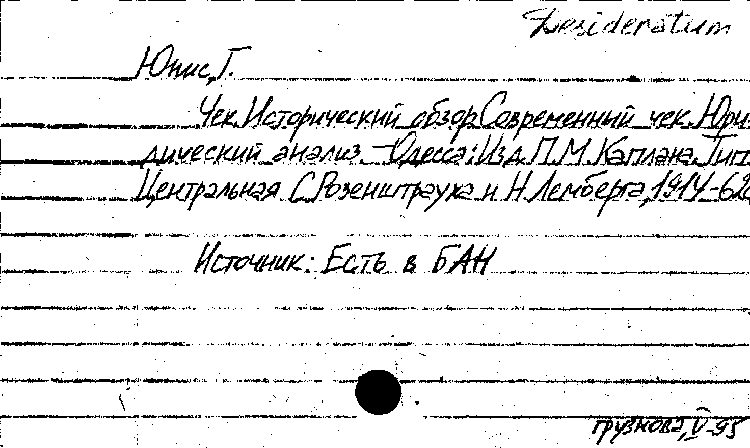 Desideratum
Юпис, Г.
Чек. Исторический обзор. Современный чек. Юри-
дический анализ. -Одесса: Изд. П.М. Каплана. Тип.
Центральная С. Розенштрауха и Н. Лемберга, 1914.-62с
Источник: Есть в БАН
грузнова, V-95